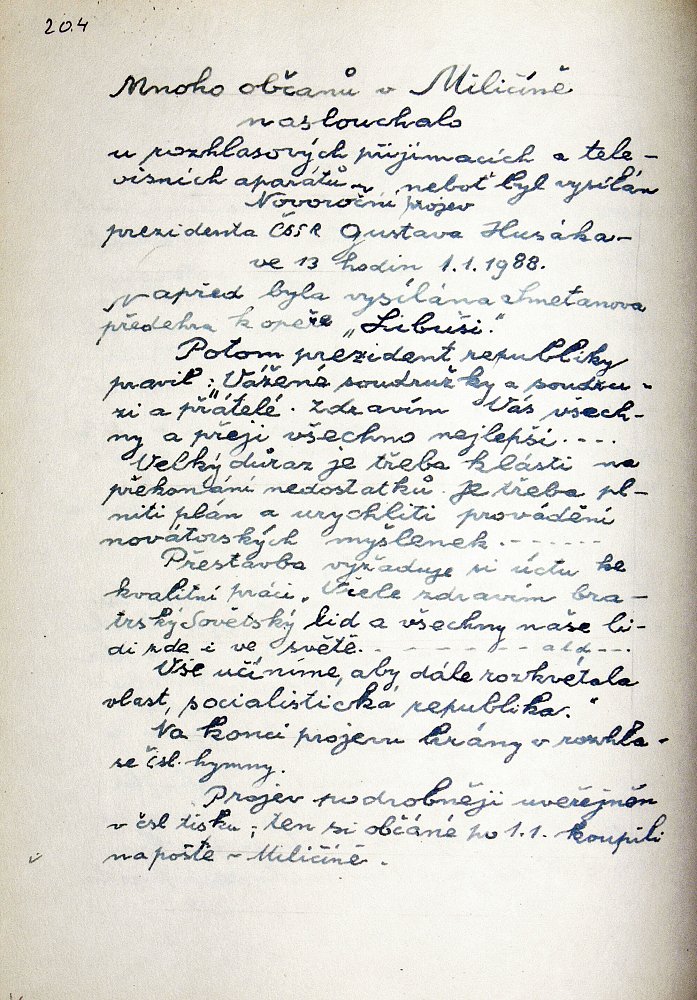 204
Mnoho občanů v Miličíně
naslouchalo
u rozhlasových přijímacích a tele-
visních aparátů, neboť byl vysílán
Novoroční projev
prezidenta ČSSR Gustava Husáka-
ve 13 hodin 1.1.1988.
Napřed byla vysílána Smetanova
předehra k opeře „Libuši."
Potom prezident republiky
pravil: „Vážené soudružky a soudru-
zi a přátelé. Zdravím Vás všech-
ny a přeji všechno nejlepší....
Velký důraz je třeba klásti na
překonání nedostatků. Je třeba pl-
niti plán a urychliti provádění
novátorských myšlenek.......
Přestavba vyžaduje si úctu ke
kvalitní práci. Vřele zdravím bra-
trský Sovětský lid a všechny naše li-
di zde i ve světě........atd...
Vše učiníme, aby dále rozkvétala
vlast, socialistická republika."
Na konci projevu hrány v rozhla-
se čsl. hymny.
Projev podrobněji uveřejněn
v čsl tisku; ten si občáné po 1.1. koupili
na poště - Miličíně.